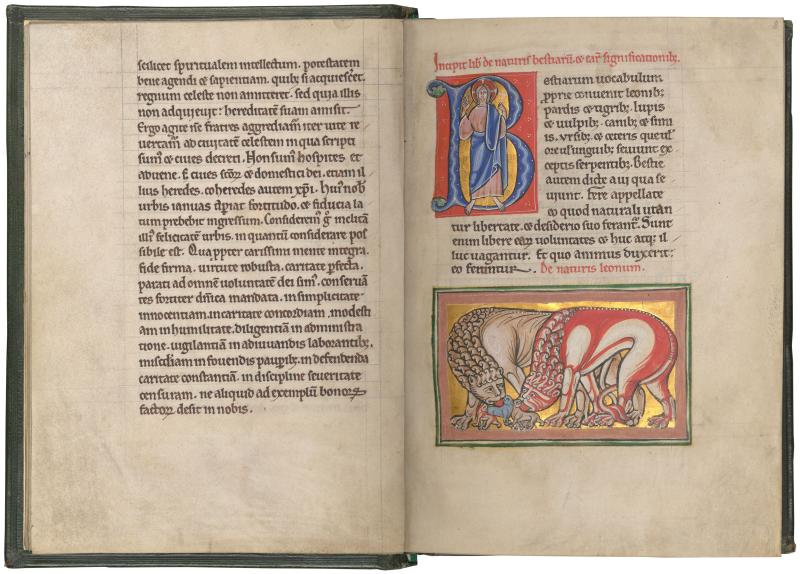 scilicet spiritualem intellectum. potestatem
bene agendi ⁊ sapientiam. quib; si acquiescēt.
regnum celeste non amitteret. sed quia illis
non adquieuit: hereditatē suam amisit.
Ergo agite iā fratres aggrediam̄ iter uite re
uertam̄ ad ciuitatē celestem in qua scripti
sum̄ ⁊ ciues decreti. Non sum̄ hospites et
aduene. s; ciues scōꝝ ⁊ domestici dei. etiam il
lius heredes. coheredes autem xp̄i. hui' nob'
urbis ianuas apiat fortitudo. ⁊ fiducia la
tum prebebit ingressum. Considerem' g̊ inclitā
illi' felicitatē urbis. in quantū considerare pos
sibile est. Qua ꝓpter carissimi mente integra.
fide firma. uirtute robusta. caritate ꝑfecta.
parati ad omnē uoluntatē dei sim'. conseruā
tes fortiter dn̄ica mandata. in simplicitate
innocentiam. in caritate concordiam. modesti
am in humilitate. diligentiam in administra
tione. uigilantiam in adiuuandis laborantib;.
misc̄diam in fouendis pauꝑib;. in defendenda
caritate constantiā. in discipline seueritate
censuram. ne aliquid ad exemplū bonoꝝ
factoꝝ desit in nobis.
Incipit lib̄ de naturis bestiarū. ⁊ eaꝝ significationib;.
Bestiarum uocabulum
ꝓprie conuenit leonib;
pardis ⁊ tigrib;. lupis
⁊ uulpib;. canib; ⁊ simi
is. vrsib; ⁊ ceteris que ul'
ore ul' unguib; seuiunt ex
ceptis serpentib;. Bestie
autem dicte a ui qua se
uiunt. Fere appellate
eo quod naturali utan
tur libertate. ⁊ desiderio suo ferant̄. Sunt
enim libere eaꝝ uoluntates ⁊ huc atq; il
luc uagantur. Et quo animus duxerit:
eo feruntur. De naturis leonum.